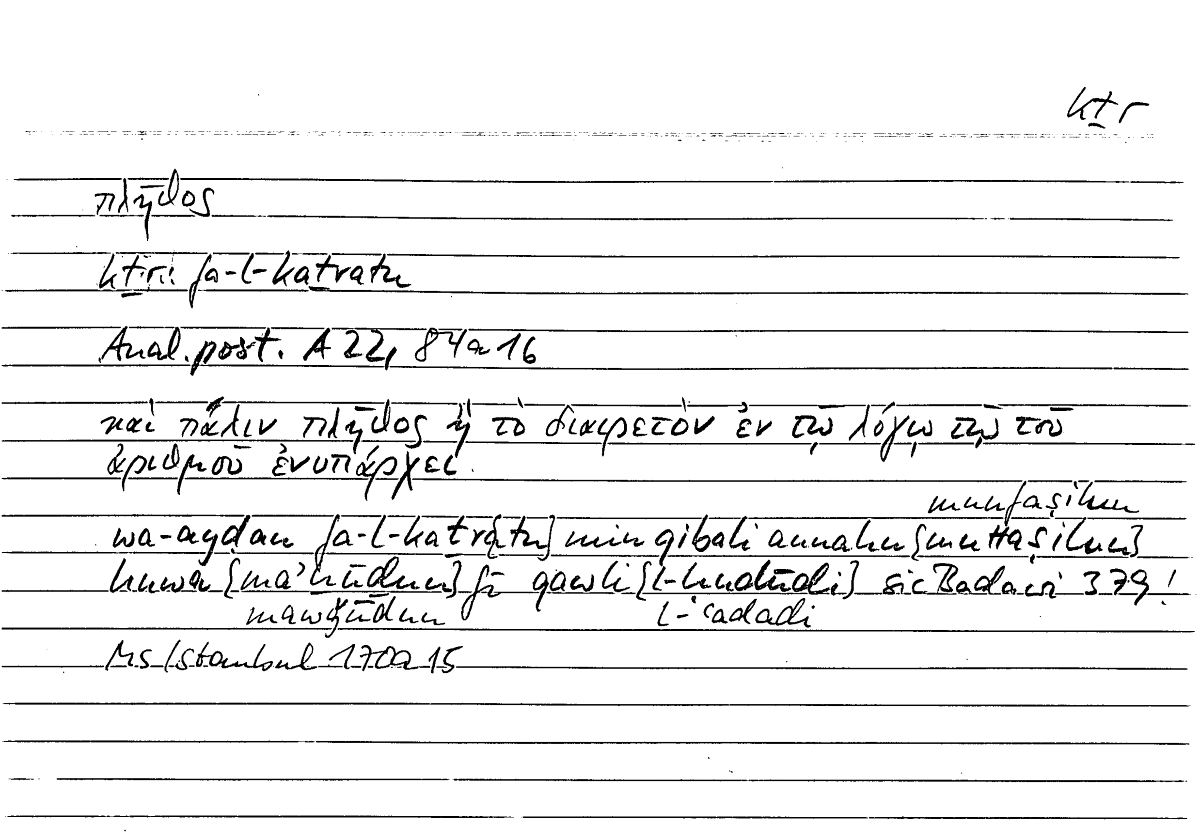 kṯr
πλῆθος
kṯr: fa-l-kaṯratu
Anal. post. A 22, 84a16
καὶ πάλιν πλῆθος ᾗ τὸ διαιρετὸν ἐν τῷ λόγῳ τῷ τοῦ
ἀριθμοῦ ἐνυπάρχει.
munfaṣilun
wa-ayḍan fa-l-kaṯratu] min qibali annahu [muttaṣilun]
huwa [ma’ḫūḏun] fī qawli [l-ḥudūdi] sic Badawi 379!
mawǧūdun l-ʿadadi
Ms Istanbul 170a15